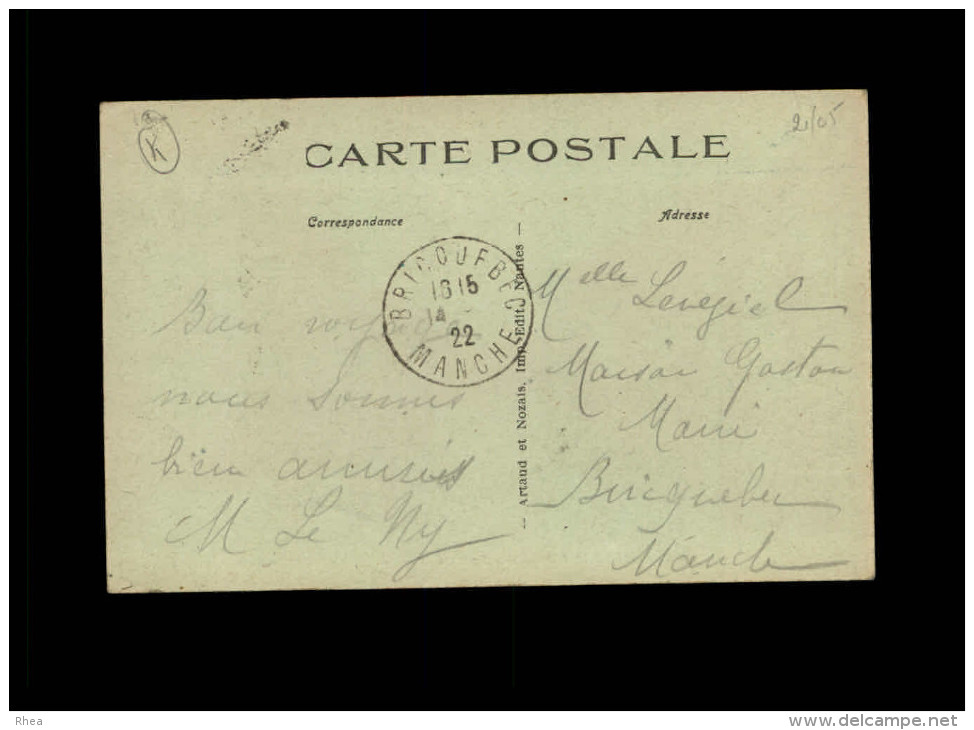 K
2/05
CARTE POSTALE
Correspondance
Adresse
BRICQUEBEC
1615
14
22
MANCHE
Bon voyage
nous sommes
bien amusés
M Le Ny
— Artaud et Nozais, Imp.-Edit., Nantes —
Melle
Maison Gaston
Bricquebec
Manche
Rhea
www.delcampe.net